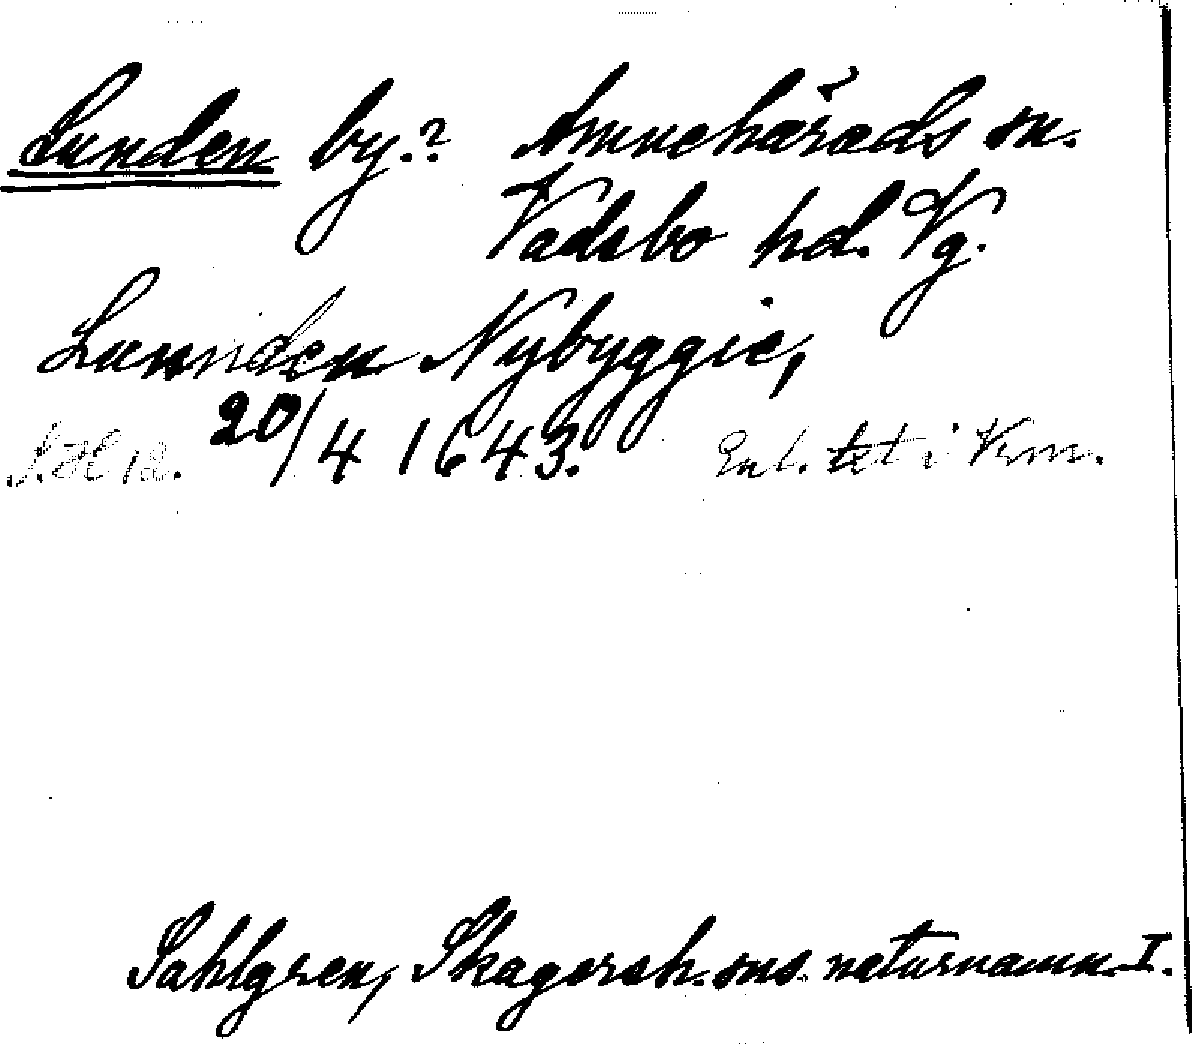 Lunden by.? Amnehärads sn.
Vadsbo hd. Vg.
Lunnden Nybyggie,
20/4 1643. Enl. tet i Vrm.
Sahlgren, Skagersh. sns. naturnamn I.